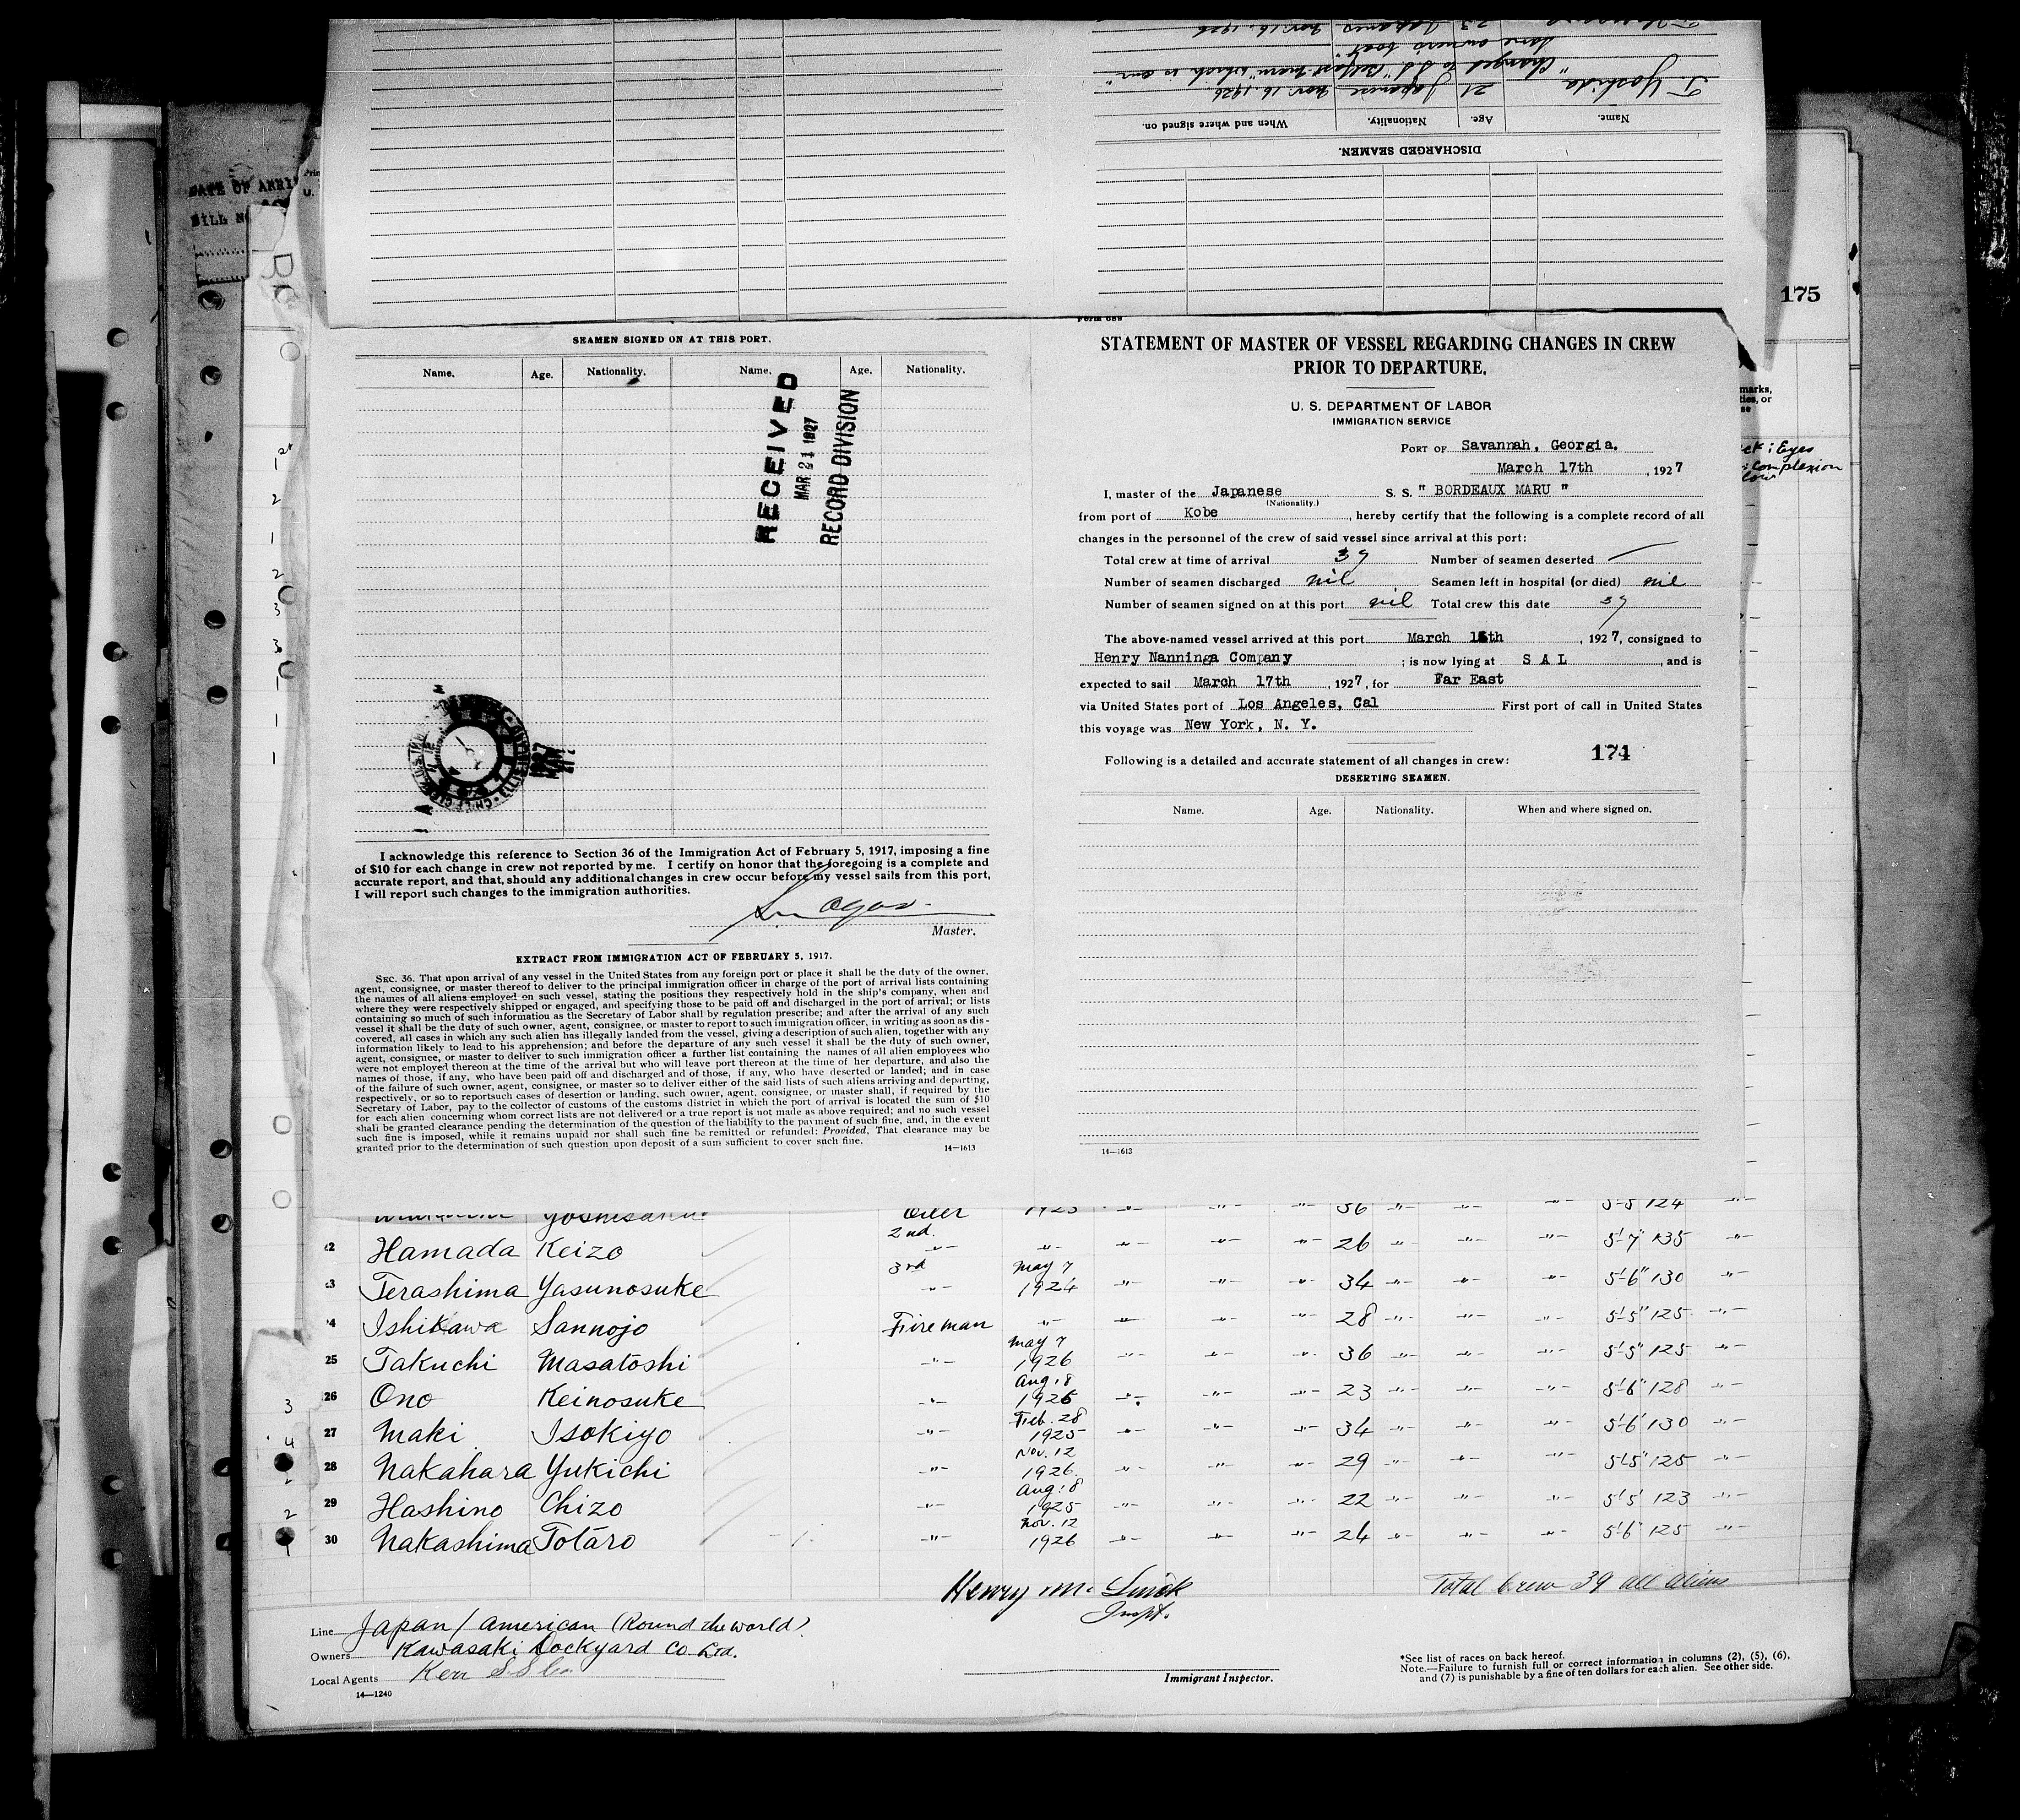 T. Yoshida 21 Japanese Nov. 16, 1926
Changed to S.S. "Belfast Maru" which is our
same owner's boat
Name. Age. Nationality. When and where signed on.
DISCHARGED SEAMEN.
DATE OF ARRI
BILL N
175
marks,
ties, or
se
Eyes
Complexion
SEAMEN SIGNED ON AT THIS PORT.
Name. Age. Nationality. Name. Age. Nationality.
RECEIVED
MAR 21 1927
RECORD DIVISION
I acknowledge this reference to Section 36 of the Immigration Act of February 5, 1917, imposing a fine
of $10 for each change in crew not reported by me. I certify on honor that the foregoing is a complete and
accurate report, and that, should any additional changes in crew occur before my vessel sails from this port,
I will report such changes to the immigration authorities.
Master.
EXTRACT FROM IMMIGRATION ACT OF FEBRUARY 5, 1917.
SEC. 36. That upon arrival of any vessel in the United States from any foreign port or place it shall be the duty of the owner,
agent, consignee, or master thereof to deliver to the principal immigration officer in charge of the port of arrival lists containing
the names of all aliens employed on such vessel, stating the positions they respectively hold in the ship's company, when and
where they were respectively shipped or engaged, and specifying those to be paid off and discharged in the port of arrival; or lists
containing so much of such information as the Secretary of Labor shall by regulation prescribe; and after the arrival of any such
vessel it shall be the duty of such owner, agent, consignee, or master to report to such immigration officer, in writing as soon as dis-
covered, all cases in which any such alien has illegally landed from the vessel, giving a description of such alien, together with any
information likely to lead to his apprehension; and before the departure of any such vessel it shall be the duty of such owner,
agent, consignee, or master to deliver to such immigration officer a further list containing the names of all alien employees who
were not employed thereon at the time of the arrival but who will leave port thereon at the time of her departure, and also the
names of those, if any, who have been paid off and discharged and of those, if any, who have deserted or landed; and in case
of the failure of such owner, agent, consignee, or master so to deliver either of the said lists of such aliens arriving and departing,
respectively, or so to report such cases of desertion or landing, such owner, agent, consignee, or master shall, if required by the
Secretary of Labor, pay to the collector of customs of the customs district in which the port of arrival is located the sum of $10
for each alien concerning whom correct lists are not delivered or a true report is not made as above required; and no such vessel
shall be granted clearance pending the determination of the question of the liability to the payment of such fine, and, in the event
such fine is imposed, while it remains unpaid nor shall such fine be remitted or refunded: Provided, That clearance may be
granted prior to the determination of such question upon deposit of a sum sufficient to cover such fine.
14—1613
Form 689
STATEMENT OF MASTER OF VESSEL REGARDING CHANGES IN CREW
PRIOR TO DEPARTURE.
U. S. DEPARTMENT OF LABOR
IMMIGRATION SERVICE
PORT OF Savannah, Georgia.
March 17th, 1927
I, master of the Japanese S. S. " BORDEAUX MARU "
(Nationality.)
from port of Kobe, hereby certify that the following is a complete record of all
changes in the personnel of the crew of said vessel since arrival at this port:
Total crew at time of arrival 39 Number of seamen deserted —
Number of seamen discharged nil Seamen left in hospital (or died) nil
Number of seamen signed on at this port nil Total crew this date 39
The above-named vessel arrived at this port March th, 1927, consigned to
Henry Nanninga Company; is now lying at S A L, and is
expected to sail March 17th, 1927, for Far East
via United States port of Los Angeles, Cal First port of call in United States
this voyage was New York, N. Y.
174
Following is a detailed and accurate statement of all changes in crew:
DESERTING SEAMEN.
Name. Age. Nationality. When and where signed on.
14—1613
Oiler 1925 36 5-5 124
Hamada Keizo 2nd. 26 5'-7" 135
Terashima Yasunosuke 3rd May 7 1924 34 5'-6" 130
Ishikawa Sannojo Fireman 28 5'-5" 125
25 Takuchi Masatoshi May 7 1926 36 5'-5" 125
26 Ono Keinosuke Aug. 8 1925 23 5'-6" 128
27 Maki Isokiyo Feb. 28 1925 34 5'-6" 130
28 Nakahara Yukichi Nov. 12 1926 29 5'-5" 125
29 Hashino Chizo Aug. 8 1925 22 5'5" 123
30 Nakashima Totaro Nov. 12 1926 24 5'-6" 125
Henry M.
Inspt.
Total Crew 39 all aliens
Line Japan/American (Round the world)
Owners Kawasaki Dockyard Co. Ltd.
Local Agents Kerr S S Co.
14—1240
Immigrant Inspector.
*See list of races on back hereof.
Note.—Failure to furnish full or correct information in columns (2), (5), (6),
and (7) is punishable by a fine of ten dollars for each alien. See other side.